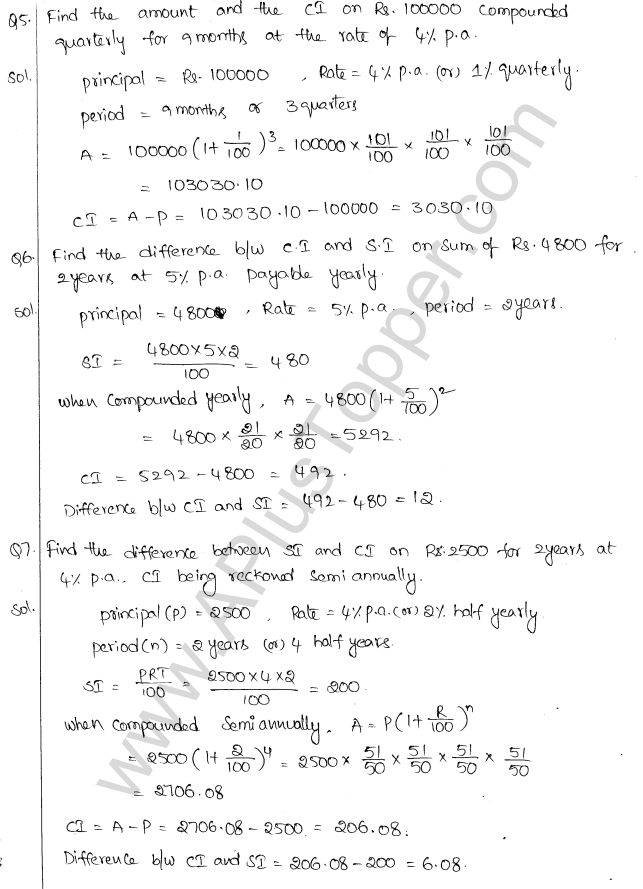 Q5. Find the amount and the CI on Rs. 100000 compounded
quarterly for 9months at the rate of 4% p.a.
Sol. principal = Rs. 100000 , Rate = 4% p.a. (or) 1% quarterly.
period = 9months or 3quarters
A = 100000(1+1/100)^3 = 100000 × 101/100 × 101/100 × 101/100
= 103030.10
CI = A-P = 103030.10 - 100000 = 3030.10
Q6. Find the difference b/w C.I and S.I on sum of Rs. 4800 for
2years at 5% p.a. payable yearly.
Sol. principal = 4800 , Rate = 5% p.a. , period = 2years.
SI = 4800×5×2/100 = 480
when compounded yearly, A = 4800(1+5/100)^2
= 4800 × 21/20 × 21/20 = 5292.
CI = 5292 - 4800 = 492.
Difference b/w CI and SI = 492 - 480 = 12.
Q7. Find the difference between SI and CI on Rs. 2500 for 2years at
4% p.a. CI being reckoned semi annually.
Sol. principal (P) = 2500 , Rate = 4% p.a. (or) 2% half yearly
period (n) = 2 years (or) 4 half years.
SI = PRT/100 = 2500×4×2/100 = 200.
when compounded semiannually, A = P(1+R/100)^n
= 2500(1+2/100)^4 = 2500 × 51/50 × 51/50 × 51/50 × 51/50
= 2706.08
CI = A-P = 2706.08 - 2500 = 206.08.
Difference b/w CI and SI = 206.08 - 200 = 6.08.
www.APlusTopper.com